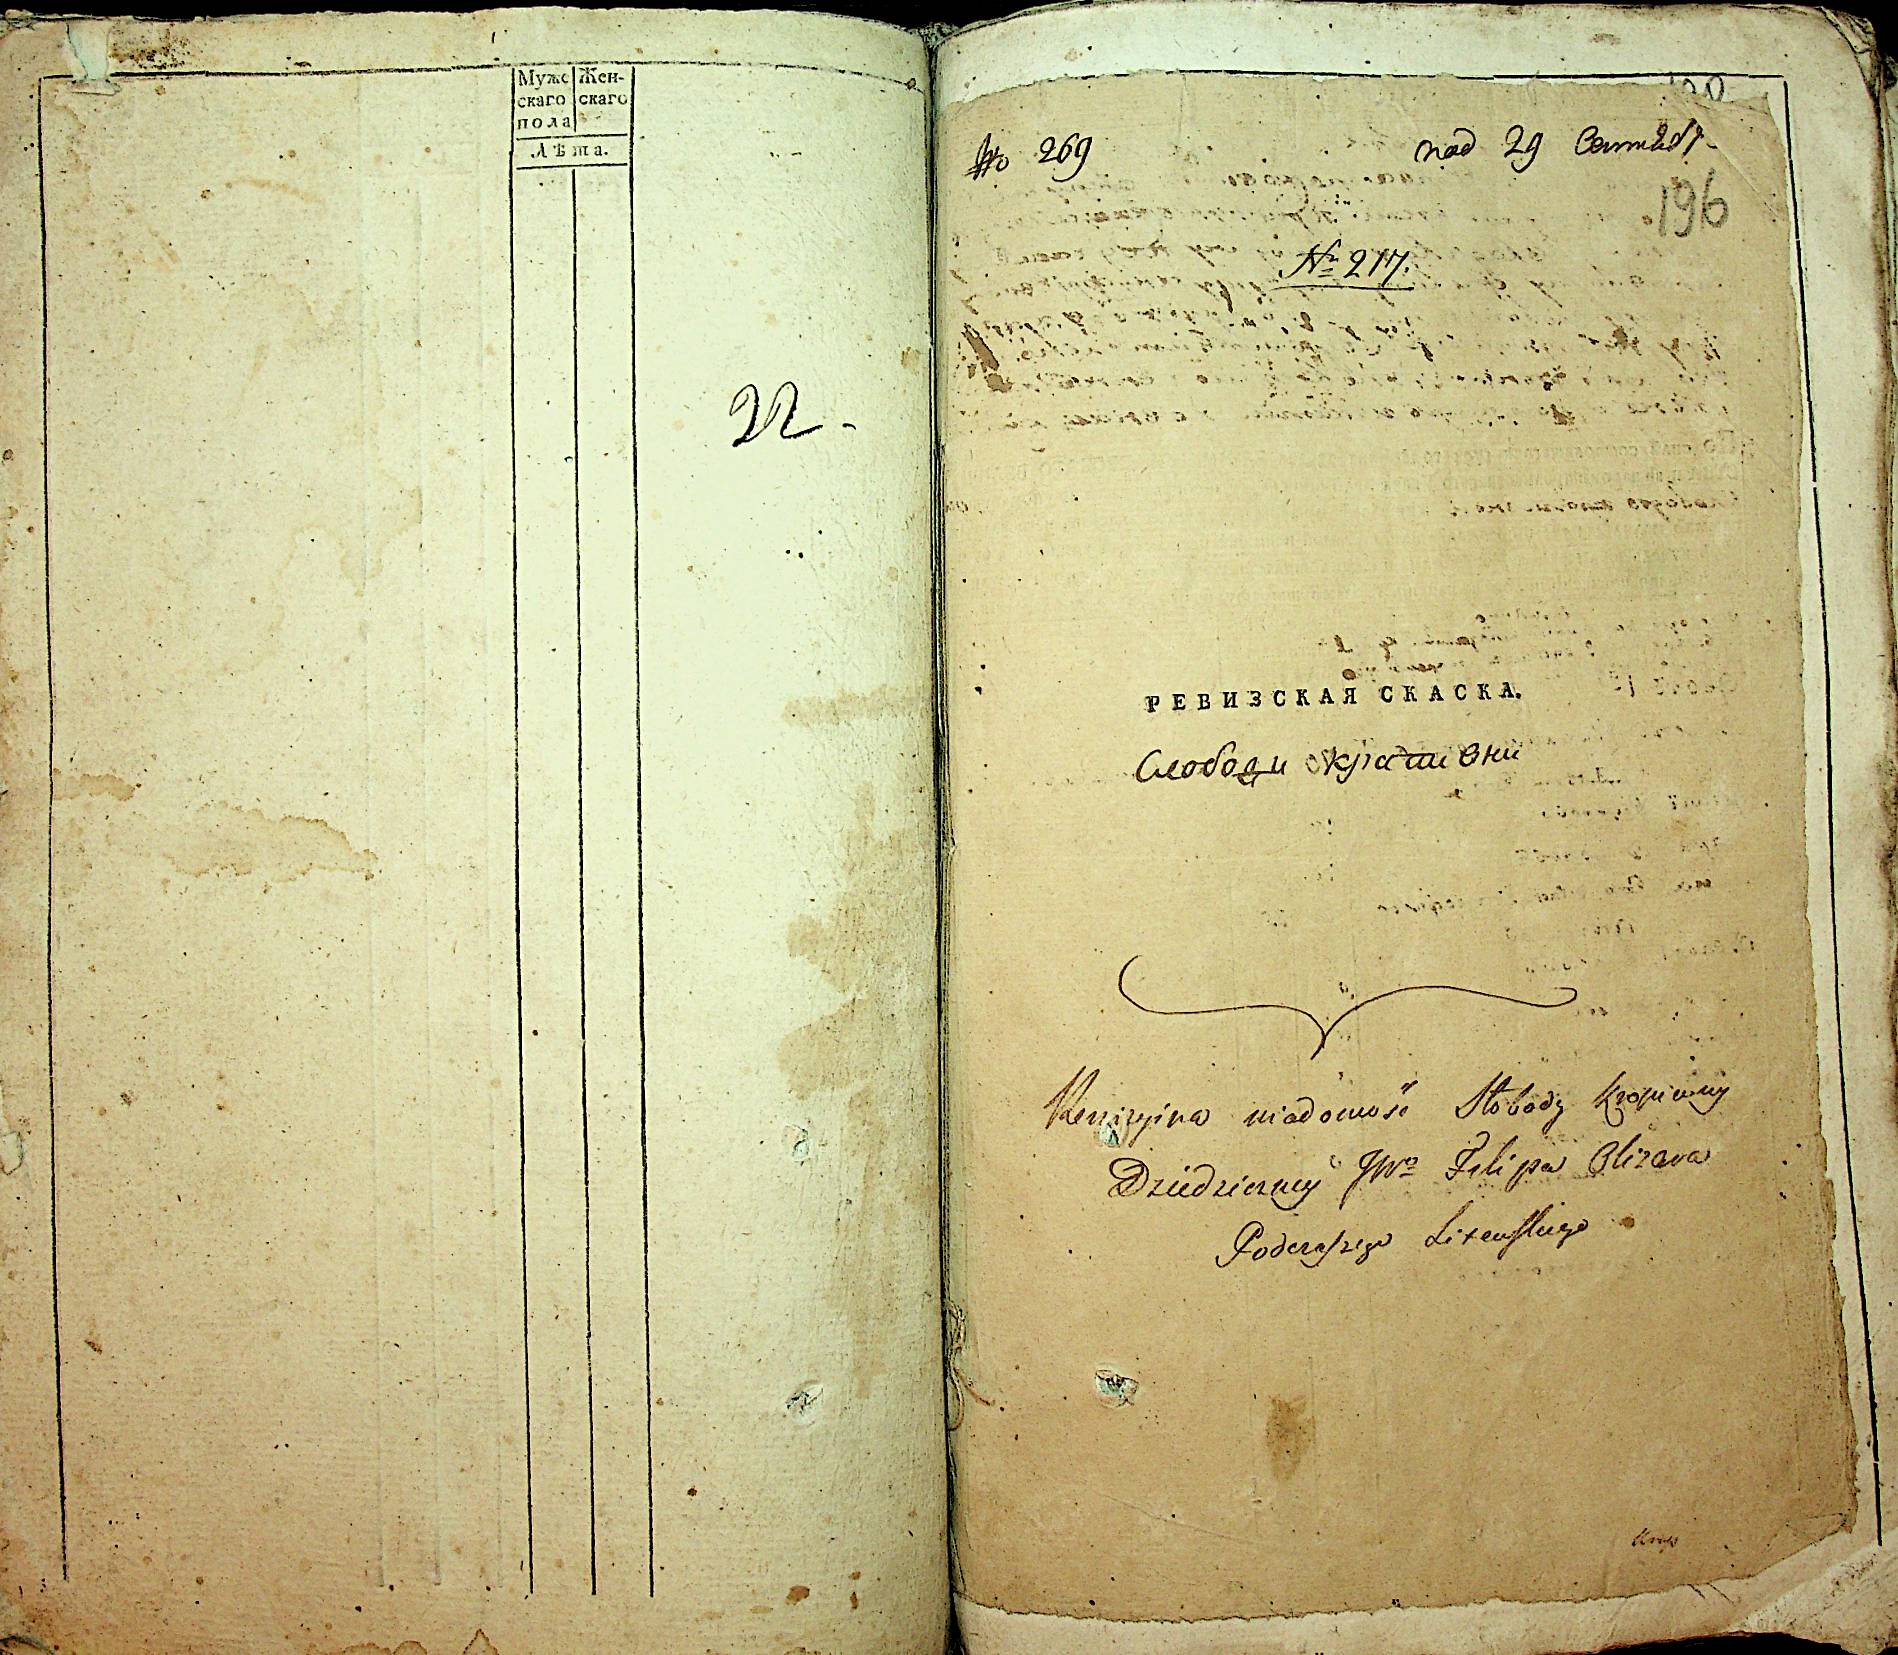 Мужс Жен-
скаго скаго
пола
Лѣта.
22.
No 269 под 29 Сентября
196
№ 217.
РЕВИЗСКАЯ СКАСКА.
Слободи
Rewizyina wiadomość Słobody Kropiwny
Dziedziczney JWo Filipa Olizara
Podczaszego Litewskiego